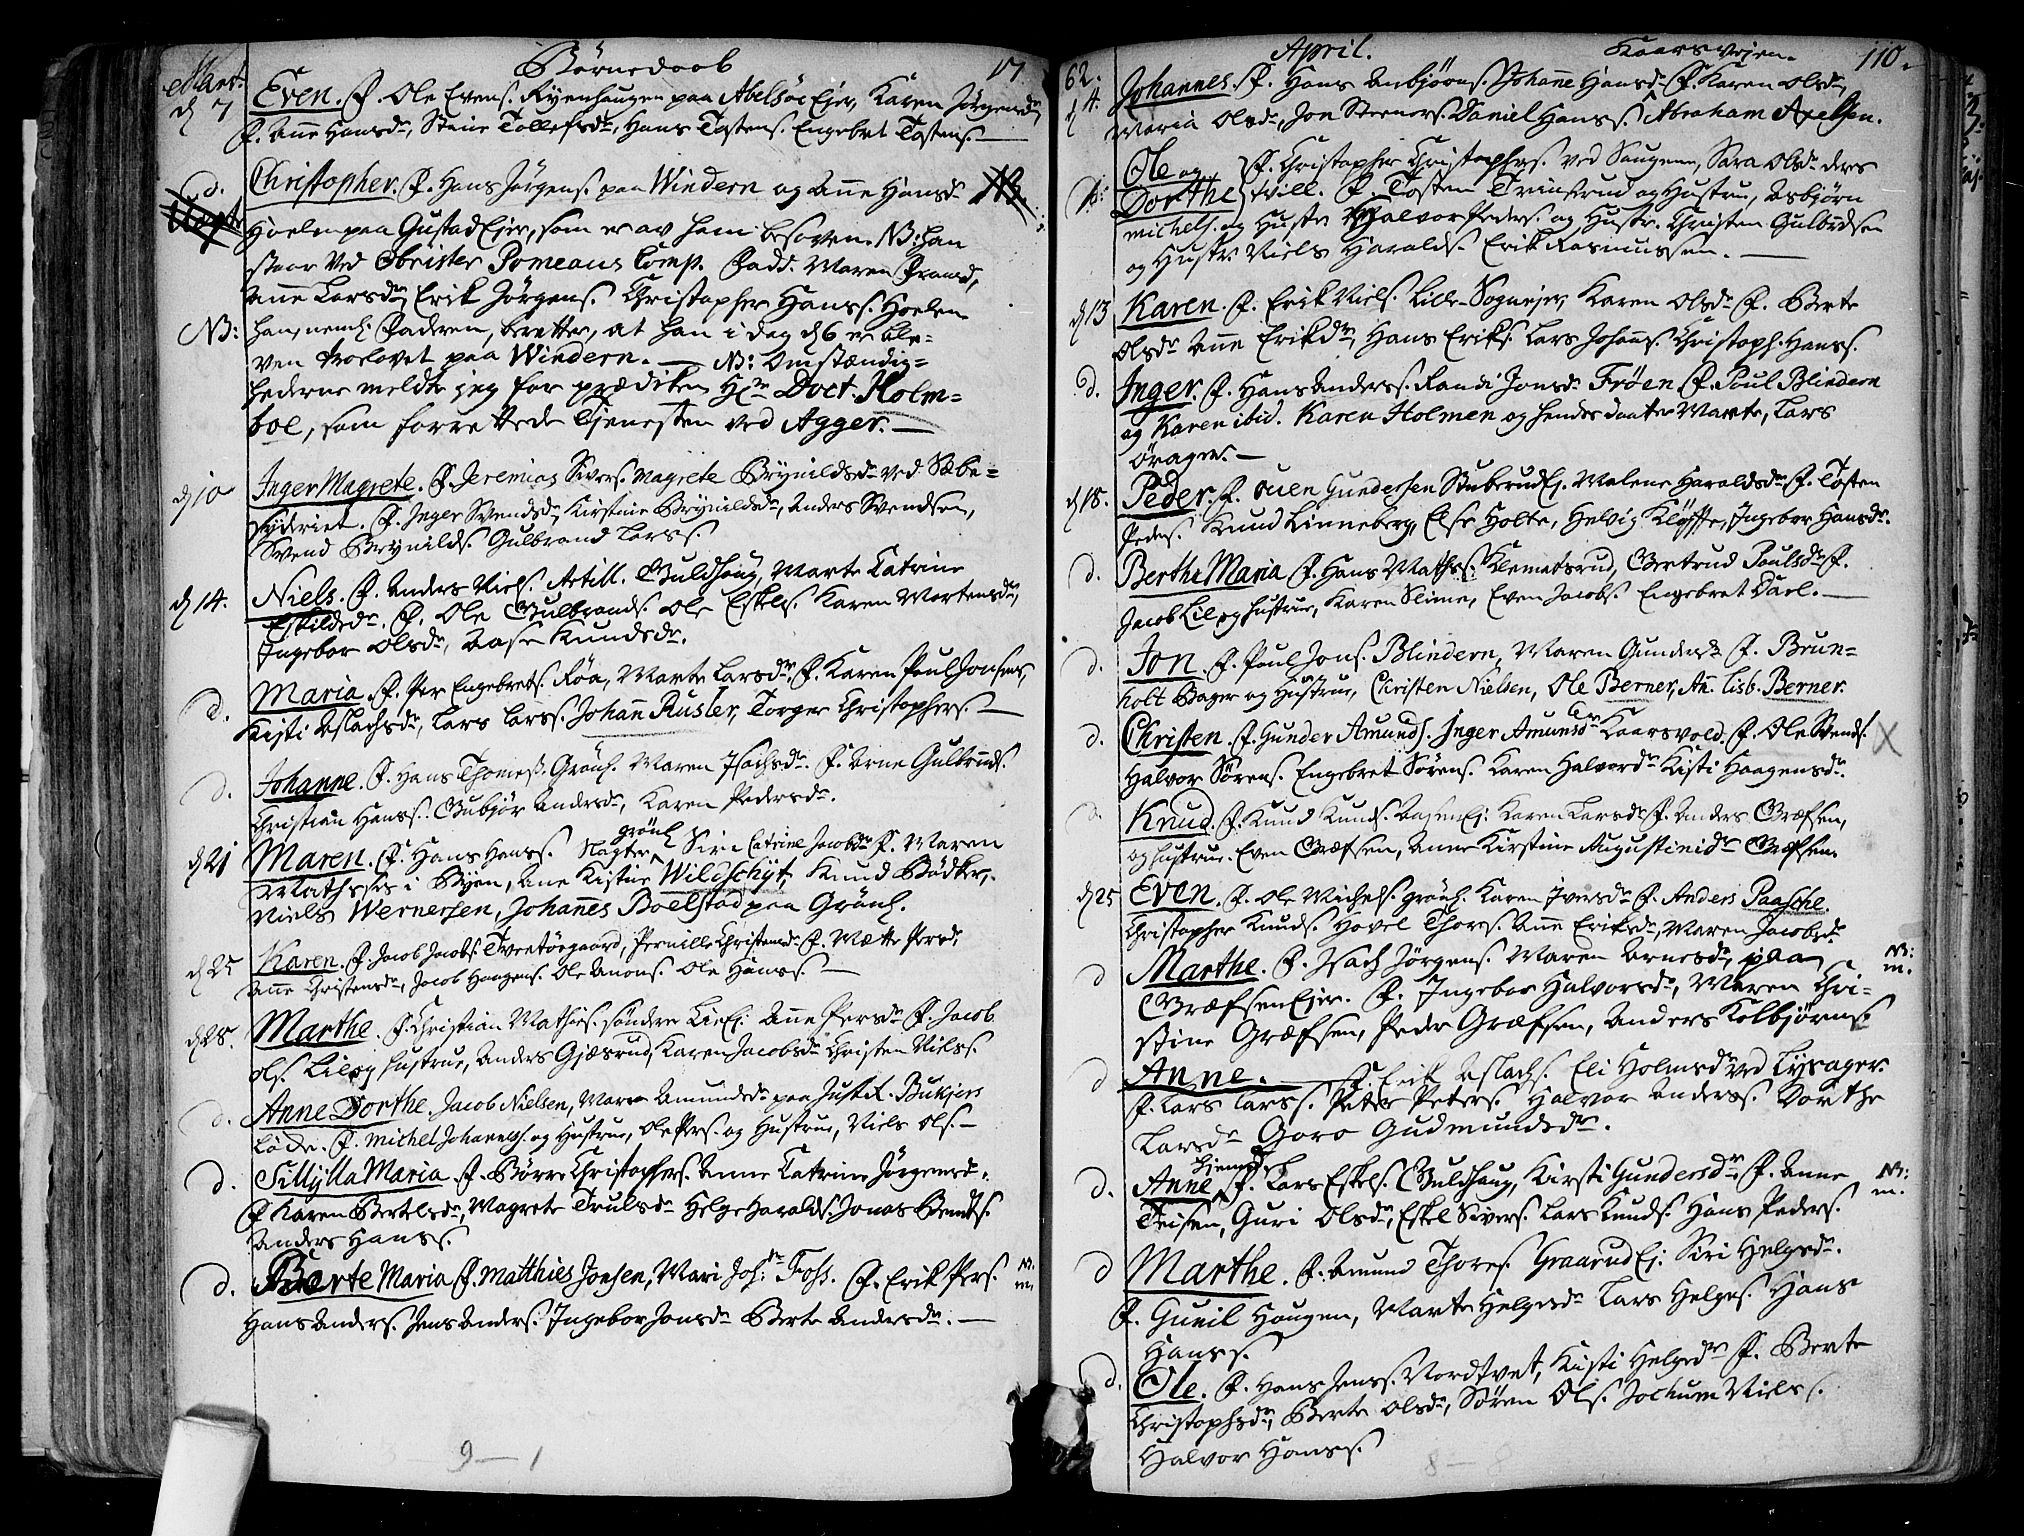 Mart. Børnedoob 17
d 7 Even. F. Ole Evens. Ryenhaugen paa Abelsøe Ejer, Karen Jørgensdr
F. Anne Hansdr, Stine Tollefsdr, Hans Tostens. Engebret Tostens.
d. Christopher. F. Hans Jørgens. paa Windern og Anne Hansdr NB.
Uægte Hoelen paa Gustad Ejer, som er av ham besoven. NB: han
staar ved Obrister Pomeaus Comp. Fadd. Maren
Anne Larsdr, Erik Jørgens. Christopher Hanss. Hoelen
NB: han, nemh. Faderen, beretter, at han i dag d 6 er ble-
ven trolovet paa Windern. — NB: Omstændig-
hederne meldte jeg for prædiken Hr Doct. Holm-
boe, som forrettede Tjenesten ved Agger. —
d 10 Inger Magrete. F. Jeremias Sivers. Magrete Brynildsdr ved Sæbe-
syderiet. F. Inger Svendsdr, Kirstine Brynildsdr, Anders Svendsen,
Svend Brynilds. Gulbrand Larss.
d 14. Niels. F. Anders Niels. Artill. Guldhaug, Marte Catrine
Eskildsdr. F. Ole Gulbrands. Ole Eskels. Karen Mortensdr,
Ingebor Olsdr, Aase Knudsdr.
d. Maria. F. Per Engebrets. Røa, Marte Larsdr. F. Karen Poul Jonsens,
Kisti Aslachsdr, Lars Larss. Johan Rusler, Torger Christophers. —
d. Johanne. F. Hans Thomes. Grönl. Maren Isachsdr. F. Arne Gulbrands.
Christian Hanss. Gubjør Andersdr, Karen Pedersdr.
d 21 Maren. F. Hans Hanss. Nagter grönl Siri Catrine Jacobsdr F. Maren
Mathss i Byen, Ane Kistine Wildschyt, Knud Bödker,
Niels Wernersen, Johannes Boelstad paa Grönl.
d 25 Karen. F. Jacob Jacobs. Tveteegaard, Pernille Christensdr. F. Mætte Persdr,
Anne Christensdr, Jacob Haagens. Ole Anons. Ole Hanss. —
d 28. Marthe. F. Christian Mathies. söndre Lie Ej. Anne Persdr F. Jacob
Ols. Lie og hustrue, Anders Gjæsrud, Karen Jacobsdr Christen Nielss.
d. Anne Dorthe. Jacob Nielsen, Maren Amundsdr paa Just. R. Bukjers
Löcke. F. Michel Johanness. og Hustrue, Ole Pers. og Hustrue, Niels Ols. —
d. Sillylla Maria. F. Börre Christophers. Anne Catrine Jörgensdr.
F. Karen Bertelsdr, Magrete Trulsdr Helge Haralds. Jonas Bendts.
Anders Hanss.
d. Berte Maria F. Matthies Jonsen, Mari Joh: dr Foss. F. Erik Pers. N. m.
Hans Anders. Jens Anders. Ingebor Jonsdr Berte Andersdr. —
9 — 1
62. April. Kaarsvejen. 110.
d 4. Johannes. F. Hans Anbjørns. Johanne Hansdr F. Karen Olsdr,
Maria Olsdr, Jon Steeners. Daniel Hanss. Abraham Axelsen.
Ole og F. Christopher Christophers. ved Saugene, Sara Olsdr deres
Dorthe Till. F. Tosten Trinserud og Hustrue, Asbjørn
Michels. og Hustr Halvor Peders. og Hustr. Christen Gulbrdsen
og Hustr Niels Haralds. Erik Rasmussen. —
d 13 Karen. F. Erik Niels. Lille-Sogn ejer, Karen Olsdr F. Berte
Olsdr Anne Eriksdr, Hans Eriks. Lars Johans. Christoph. Hanss.
d. Inger. F. Hans Anderss. Randi Jonsdr Frøen F. Poul Blindern
og Karen ibid. Karen Holmen og hendes daater Marte, Lars
Örager. —
d 18. Peder. F. Ouen Gundersen Stuberud Ej. Malene Haraldsdr. F. Tosten
Peders. Knud Linneberg, Else Holte, Helvig Kløffte, Ingebor Hansdr.
d. Berthe Maria F. Hans Mathss. Klemetsrud, Gertrud Poulsdr F.
Jacob Lie og hustrue, Karen Slime, Even Jacobs. Engebret Dael. —
d. Jon. F. Poul Jons. Blindern, Maren Gundersdr F. Brun-
holt Bager og Hustrue, Christen Nielsen, Ole Berner, An. Lisb. Berner.
d. Christen. F. Gunder Amunds. Inger Amundsdr Kaarsvold. F. Ole Svends. X
Halvor Sørens. Engebret Sørens. Karen Halvorsdr Kisti Haagensdr.
d. Knud. F. Knud Knuds. Aasen Ej. Karen Larsdr F. Anders Græfsen,
og hustrue. Even Græfsen, Anne Kirstine Augustinidr Græfsen.
d 25 Even. F. Ole Michels. grönl. Karen Iversdr F. Anders Paasche.
Christopher Knuds. Hovel Thors. Anne Eriksdr, Maren Jacobsdr
d Marthe. F. Isach Jørgens. Maren Arnesdr, paa N: m.
Græfsen Ejer. F. Ingebor Halvorsdr, Maren Chri-
stine Græfsen, Peder Græfsen, Anders Kolbjørns.
d Anne. — F. Erik Aslachs. Eli Holmsdr ved Lysager.
F. Lars Larss. Peter Peters. Halvor Anderss. Dorthe
Larsdr Goro Gudmundsdr.
d. Anne hjemdøbt F. Lars Eskels. Guldhaug, Kirsti Gundersdr F. Anne N: m.
Teisen, Guri Olsdr, Eskel Sivers. Lars Knuds. Hans Peders.
d Marthe. F. Amund Thores. Graarud Ej. Siri Helgesdr.
F. Gunil Haugen, Marte Helgesdr Lars Helges. Hans
Hanss.
d. Ole. F. Hans Jenss. Nordtvet, Kisti Helgesdr F. Berte
Christophsdr, Berte Olsdr, Sören Ols. Jochum Niels.
Halvor Hanss.
8 — 8